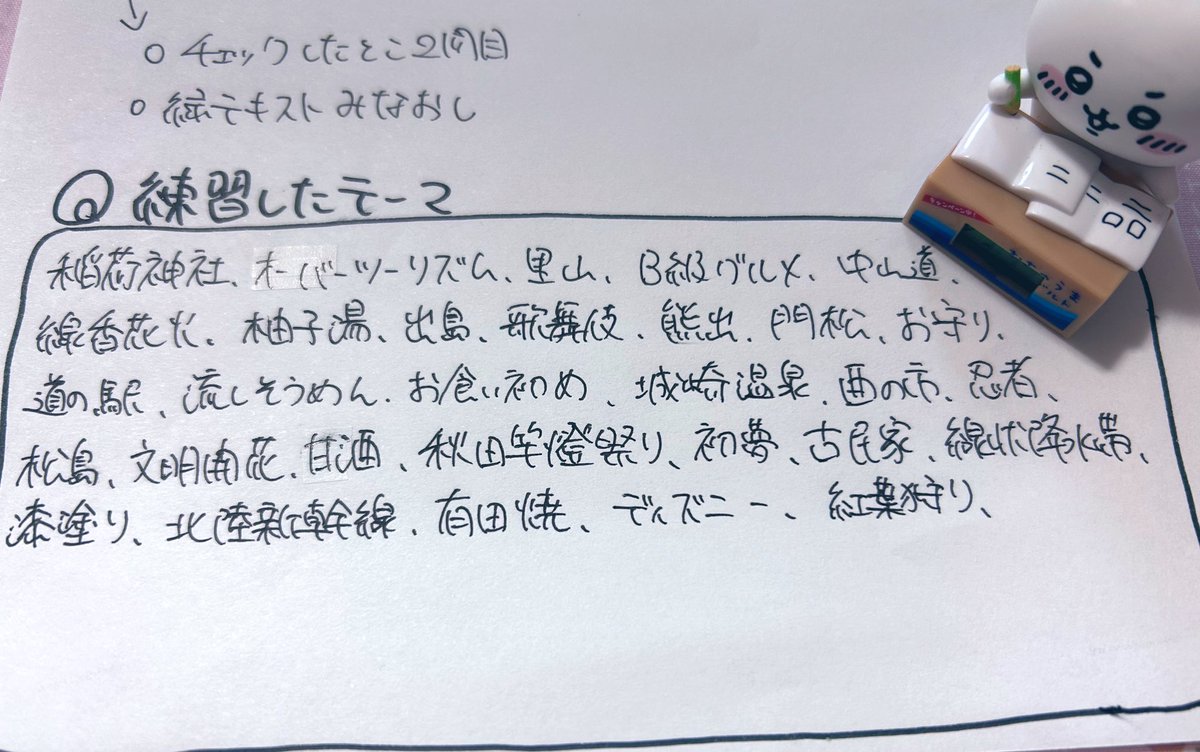 ○ チェックしたとこ2周目
○ 緑テキスト みなおし
◎ 練習したテーマ
稲荷神社、オーバーツーリズム、里山、B級グルメ、中山道、
線香花火、柚子湯、出島、歌舞伎、熊出、門松、お守り、
道の駅、流しそうめん、お食い初め、城崎温泉、酉の市、忍者、
松島、文明開花、甘酒、秋田竿燈祭り、初夢、古民家、線状降水帯、
漆塗り、北陸新幹線、有田焼、ディズニー、紅葉狩り、